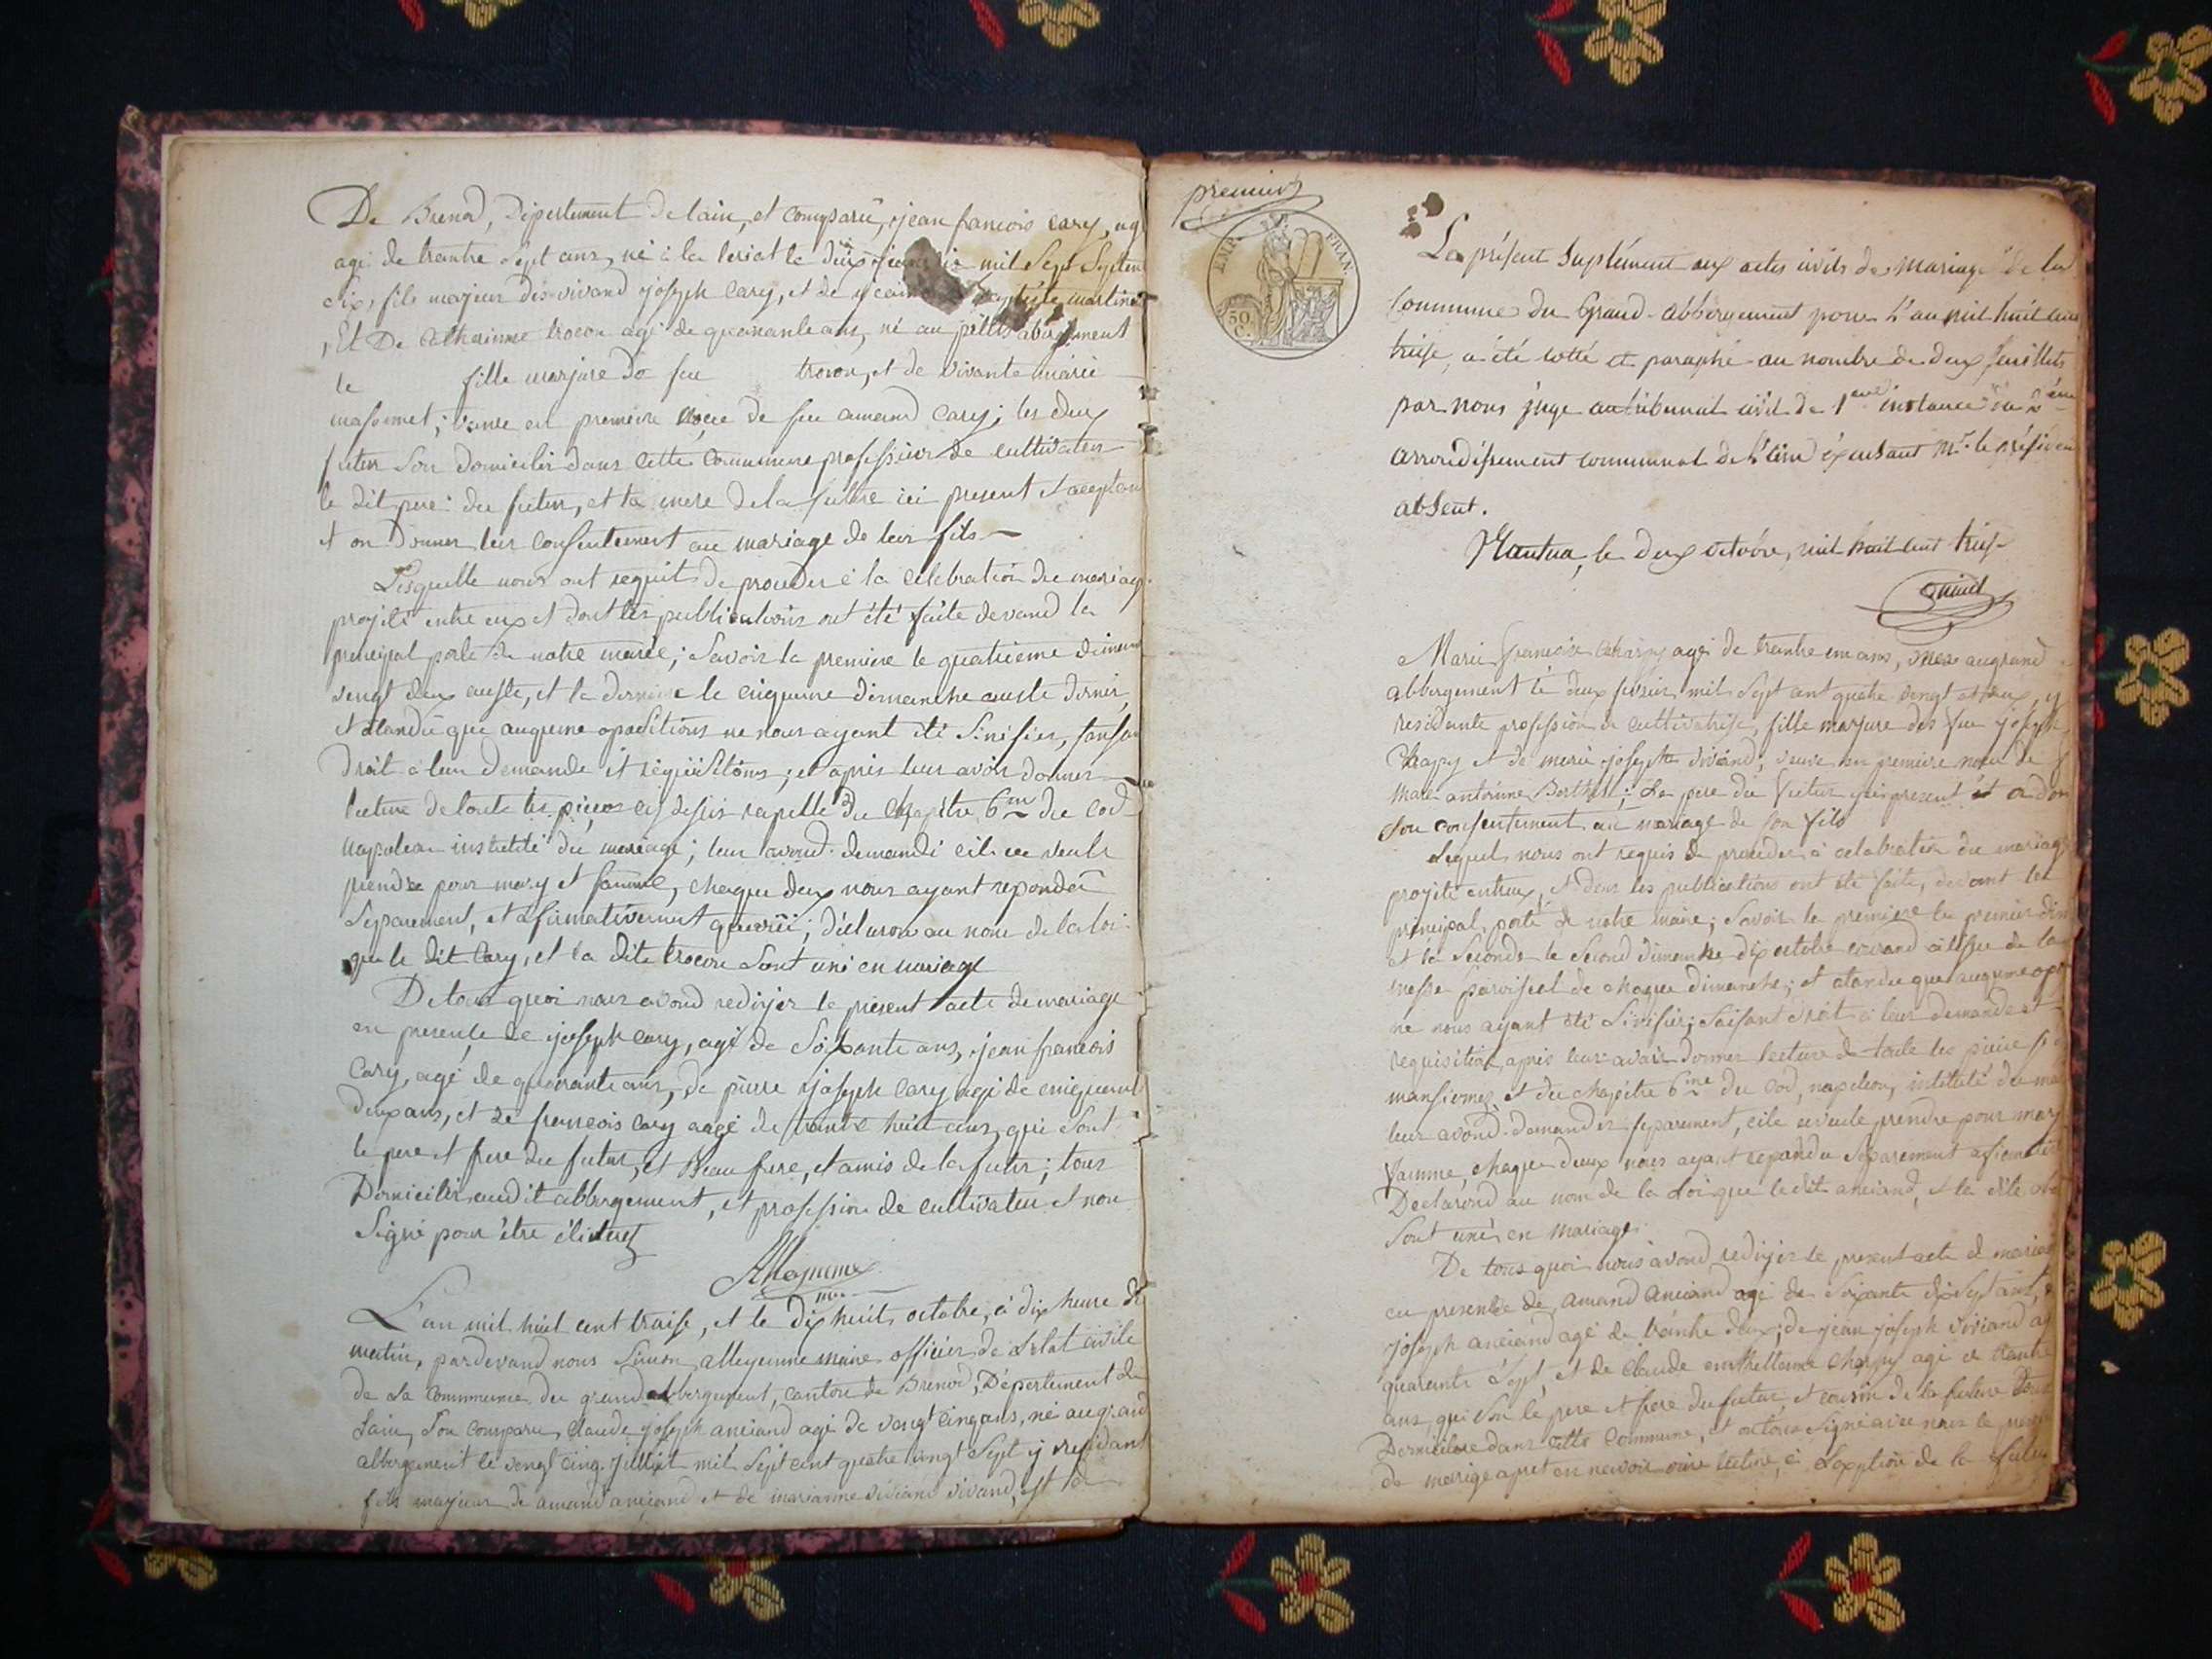 De Brenod, Dépertement de lain, et comparû, jean francois cary, ag
agé de trantre sept ans, né à la leriat le deux mil sept septen
six, fils majeur des vivand joseph Cary, et de martine
, Et De Catherinne trocon agé de quarante ans, né au petits abergement
le fille marjure do feu trocon, et de vivante marie
massonnet; veuve en premiere noce de feu amand Cary; les deux
futur son domicilés dans cette commune profession de cultivateur
le dit pere du futur, et la mere de la future ici present et aceptan
et on Donner leur consentement au mariage de leur fils
Lesquelle nous ont requit de proceder à la celebration du mariage
projeté entre eux et dont les publications ont été faite devand la
principal porte de notre marie; savoir la premiere le quatrieme dimen
vengt deux auste, et la derniere le cinquieme dimanche auste dernier,
et atandu que auqueune opositions ne nous ayant été sinifier, faisan
droit à leur demande et requisitions; et apres leur avoir donner
lecture de toute les pieces cy desus rapellé du chapitre 6me du cod
napoleon institulé du mariage; leur avond demandé cil ce veule
prendre pour mary et famme, chaque deux nous ayant repondû
separement, et afirmativement que oüi; déclaron au nom de la loi
que le dit Cary, et la dite trocon sont uni en mariage
De tous quoi nous avond redijer le présent acte de mariage
en presence de joseph cary, agé de soixante ans, jean francois
Cary, agé de quarante ans, de pierre joseph Cary agé de cinquent
deux ans, et de francois Cary aagé de trante huit ans, qui sont
le pere et frere du futur, et Beau frere, et amis de la futur; tous
Domicilié audit abbergement, et profession de cultivateur et non
Signé pour être iliteré
Alleyenne
mre
L'an mil huit cent traise, et le dix huit octobre, à dix heure du
matin, pardevand nous Simon alleyenne maire officier de l'etat civile
de la Commune du grand abbergement, canton de Brenod, Département de
Lain, son comparu, Claude joseph anciand agé de vengt cinq ans, né au grand
abbergement le vengt cinq julliet mil sept cent quatre vengt sept y residant
fils majeur de amand anciand et de marianne viviand vivand, est la
premier
EMP. FRAN.
50
C.
Le présent Suplément aux actes civils de Mariage de la
Commune du Grand-abbergement pour l'an mil huit cent
treise, a été cotté et paraphé au nombre de deux feuillets
par nous juge au tribunal civil de 1ere instance du 2eme
arrondissement communal de l'ain excusant Mr. le Présiden
absent.
Nantua, le deux octobre, mil huit cent treise
Marie Francoise Charpy agé de trantre un ans, née au grand
abbergement le deux fevrier mil sept cent quatre vengt et deux, y
residante profession de cultivatrise, fille marjure des feu joseph
Charpy et de marie josephte viviand, veuve en premiere noce de
Marc antoinne Berthet; Le pere du futur ici present et a don
son consentement au mariage de son fils
Lequels nous ont requis de proceder à celebration du mariage
projeté entreux, et dont les publications ont été faite, devant la
principal porte de notre maire; savoir la premiere le premier dim
et la seconde le second dimanche dix octobre courand à lissue de la
messe parroissial de chaque dimanche; et atandu que auqune opo
ne nous ayant été sinifier; faisant droit à leur demande et
requisition, apres leur avoir donner lecture de toute les pieces
mansionnez, et du chapitre 6me du cod, napoleon, intitulé du ma
leur avond demander separement, cile ce veule prendre pour mary
famme, chaque deux nous ayant repondu separement afirmativ
Declarond au nom de la loi que ledit anciand, et la dite
sont unis en mariage
De tous quoi nous avond redijer le present acte de mariage
en presence de amand anciand agé de soixante dix sept ans,
joseph anciand agé de trantre deux, de jean joseph viviand ag
quarente sept, et de Claude Charpy agé de trantre
ans, qui son le pere et frere du futur, et cousin de la future tous
Domicilié dans cette commune, et on tous signé avec nous le present
de mariage apret en navoir ouie lecture, à l'exeption de la future